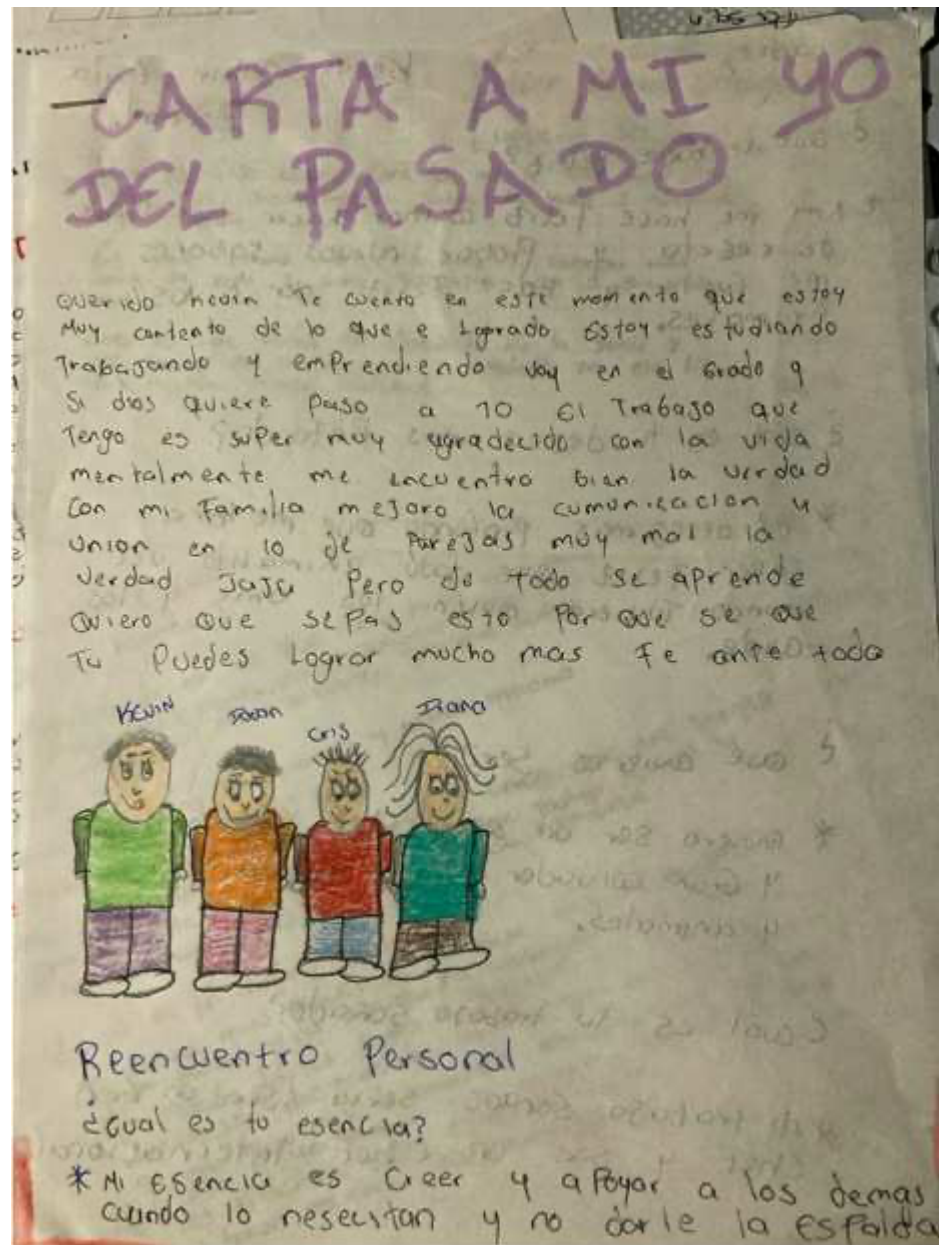 CARTA A MI YO
DEL PASADO
Querido kevin Te cuento en este momento que estoy
Muy contento de lo que e Logrado Estoy estudiando
Trabajando y emprendiendo voy en el Grado 9
Si dios quiere Paso a 10 El Trabajo que
Tengo es super muy agradecido con la vida
mentalmente me encuentro bien la verdad
Con mi Familia mejoro la cumunicacion y
Union en lo de Parejas muy mal la
Verdad JaJa Pero de todo se aprende
Quiero Que sepas esto Por que se que
Tu Puedes Lograr mucho mas Fe ante todo
KEVIN
Cris
Diana
Reencuentro Personal
¿Cual es tu esencia?
* Mi Esencia es Creer y apoyar a los demas
cuando lo nesecitan y no darle la espalda